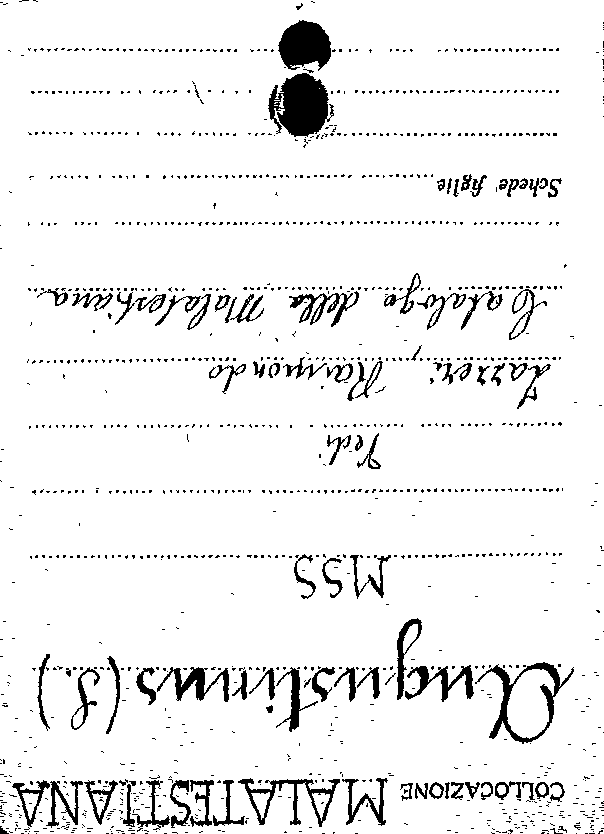 COLLOCAZIONE MALATESTIANA
Augustinus (S.)
MSS
Vedi
Zazzeri, Raimondo
Catalogo della Malatestiana
Schede figlie